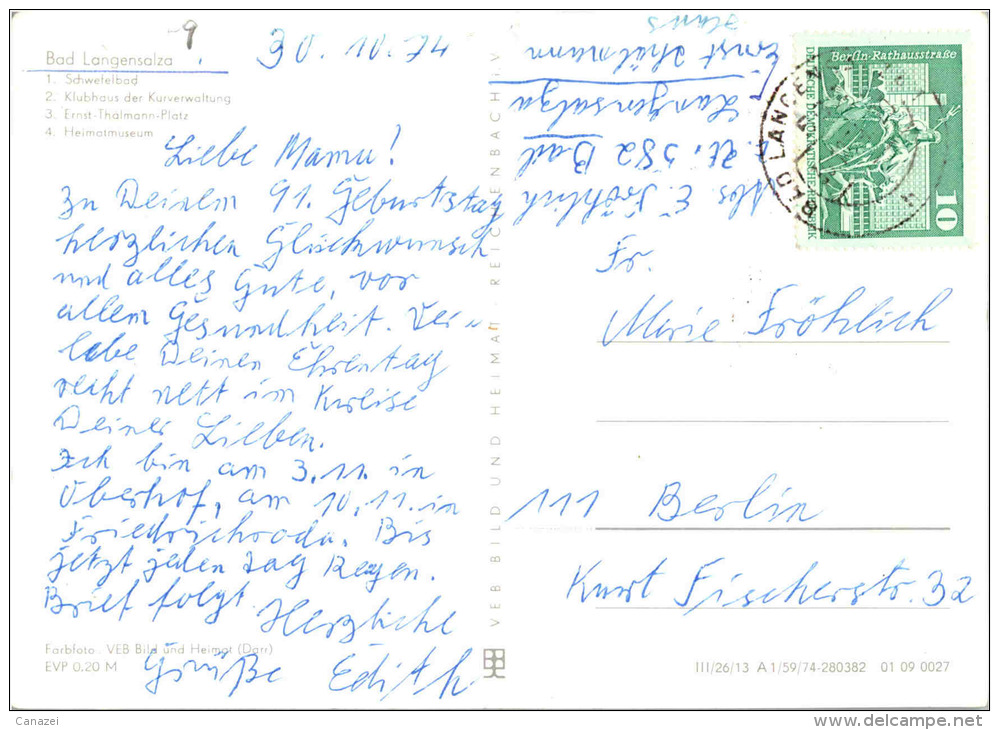 9
30.10.74
Bad Langensalza
1. Schwefelbad
2. Klubhaus der Kurverwaltung
3. Ernst-Thälmann-Platz
4. Heimatmuseum
Liebe Mamu!
Zu Deinem 91. Geburtstag
herzlichen Glückwunsch
und alles Gute, vor
allem Gesundheit. Ver-
lebe Deinen Ehrentag
recht nett im Kreise
Deiner Lieben.
Ich bin am 3.11. in
Oberhof, am 10.11. in
Friedrichroda. Bis
jetzt jeden Tag Regen.
Brief folgt.
Herzliche
Grüße Edith
Farbfoto: VEB Bild und Heimat (Darr)
EVP 0.20 M
VEB BILD UND HEIMAT REICHENBACH i V
Abs. E. Fröhlich
z. Zt. 582 Bad
Langensalza
Ernst Thälmann
Haus
Berlin-Rathausstraße
DEUTSCHE DEMOKRATISCHE REPUBLIK
10
BAD LANGEN
Fr.
Marie Fröhlich
111 Berlin
Kurt Fischerstr. 32
III/26/13 A 1/59/74-280382 01 09 0027
Canazei
delcampe.net